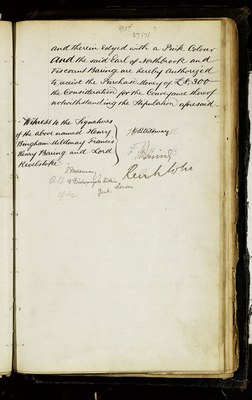 and therein edged with a Pink Colour
And the said Earl of Northbrook and
Viscount Baring are hereby Authorized
to receive the Purchase Money of £8,300
the Consideration for the Conveyance thereof
notwithstanding the Stipulation aforesaid
Witness to the Signatures
of the above named Henry
Bingham Mildmay Francis
Henry Baring and Lord
Revelstoke
HBMildmay
F Baring
Revelstoke
London